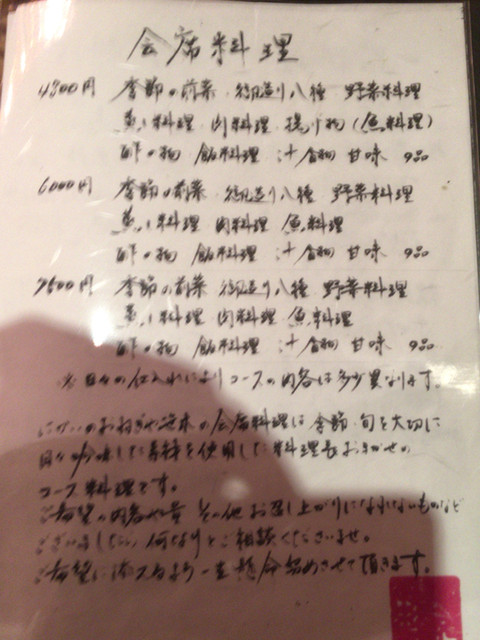 会席料理
4800円 季節の前菜 御造り八種 野菜料理
蒸し料理 肉料理 揚げ物(魚料理)
酢の物 飯料理 汁 食物 甘味 9品
6000円 季節の前菜 御造り八種 野菜料理
蒸し料理 肉料理 魚料理
酢の物 飯料理 汁 食物 甘味 9品
7500円 季節の前菜 御造り八種 野菜料理
蒸し料理 肉料理 魚料理
酢の物 飯料理 汁 食物 甘味 9品
※日々の仕入れによりコースの内容は多少異なります。
の会席料理は季節・旬を大切に
日々吟味した素材を使用した料理長おまかせの
コース料理です。
ご希望の内容や量 その他お召し上がりになれないものなど
ございましたら 何なりとご相談くださいませ。
ご希望に添えるよう一生懸命努めさせて頂きます。